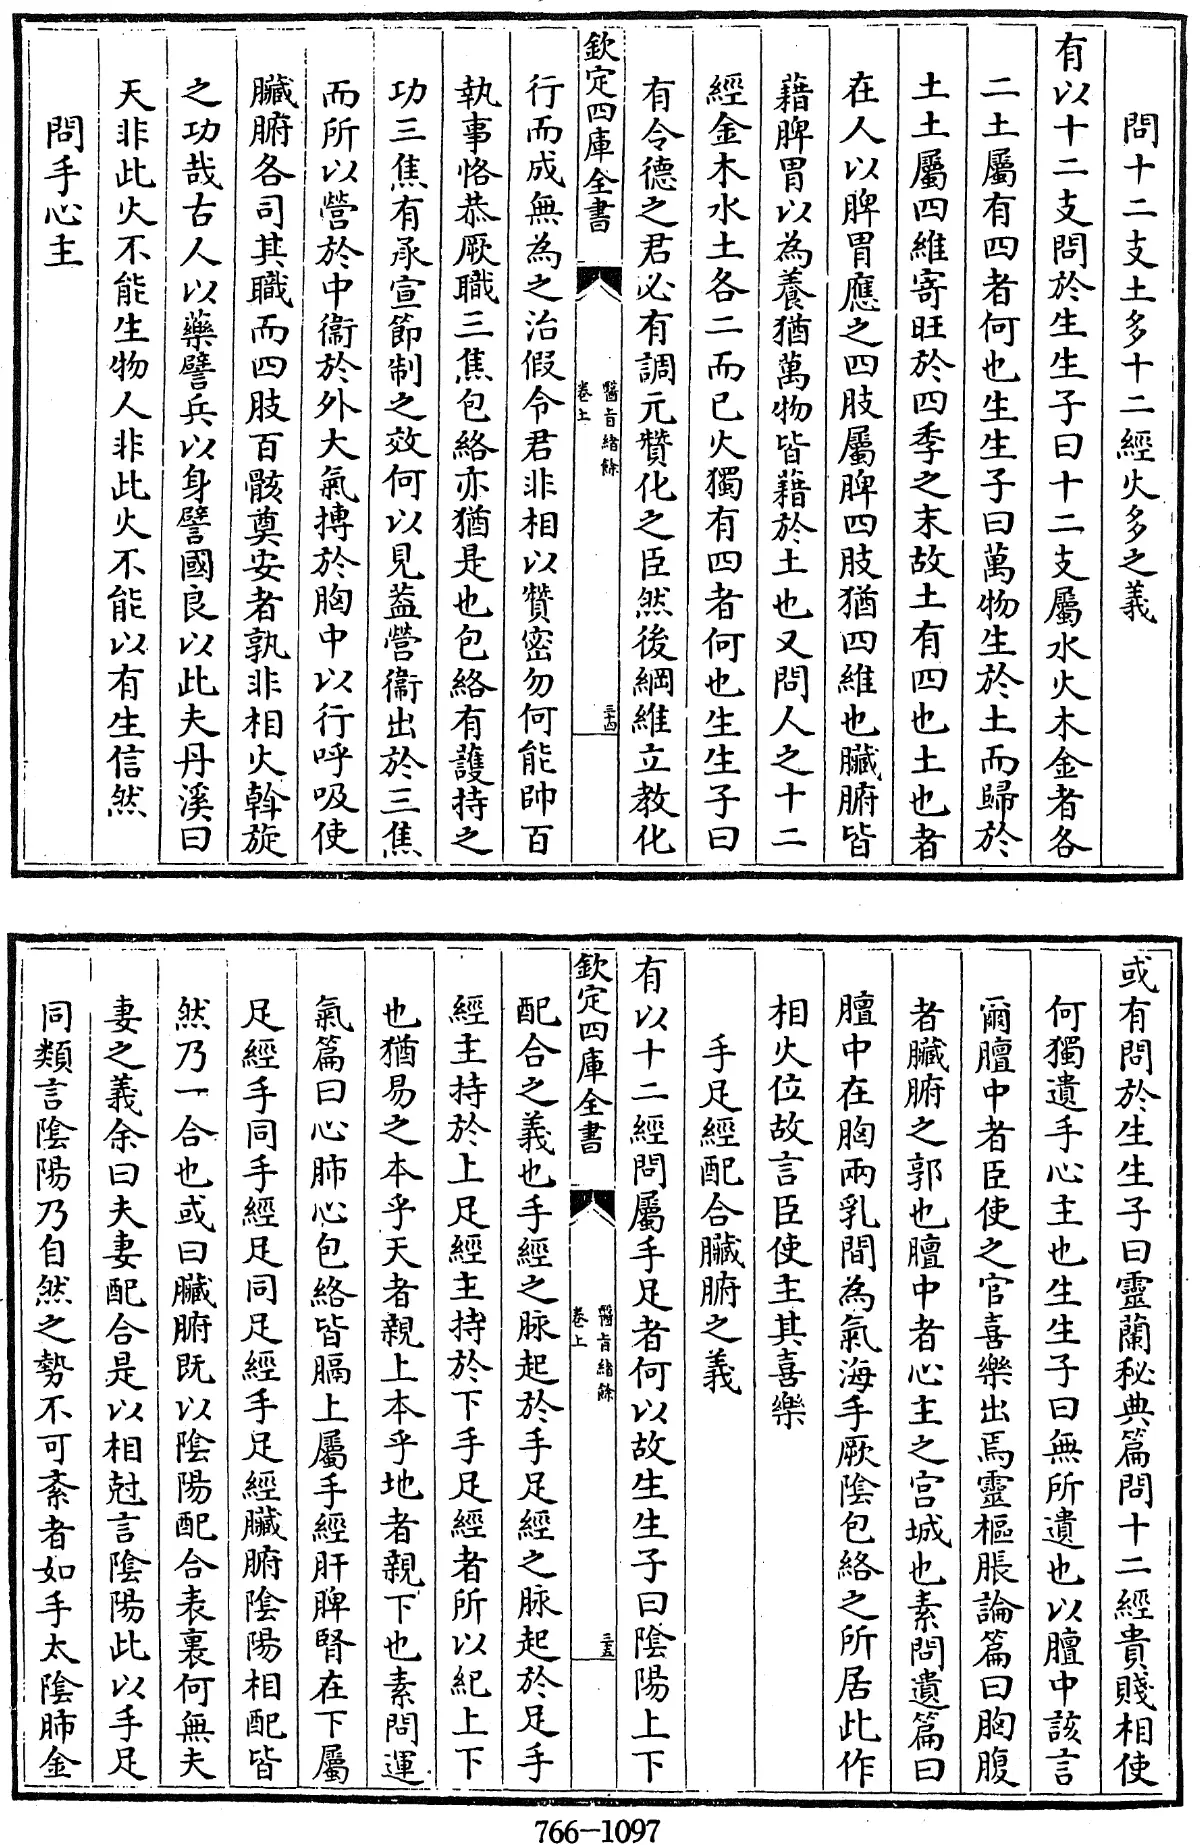 問十二支土多十二經火多之義
有以十二支問於生生子曰十二支屬水火木金者各
二土屬有四者何也生生子曰萬物生於土而歸於
土土屬四維寄旺於四季之末故土有四也土也者
在人以脾胃應之四肢屬脾四肢猶四維也臟腑皆
藉脾胃以為養猶萬物皆藉於土也又問人之十二
經金木水土各二而已火獨有四者何也生生子曰
有令德之君必有調元贊化之臣然後綱維立教化
欽定四庫全書
醫旨緒餘
卷上
三十四
行而成無為之治假令君非相以贊密勿何能帥百
執事恪恭厥職三焦包絡亦猶是也包絡有護持之
功三焦有承宣節制之效何以見葢營衞出於三焦
而所以營於中衞於外大氣摶於胸中以行呼吸使
臟腑各司其職而四肢百骸奠安者孰非相火斡旋
之功哉古人以藥譬兵以身譬國良以此夫丹溪曰
天非此火不能生物人非此火不能以有生信然
問手心主
或有問於生生子曰靈蘭秘典篇問十二經貴賤相使
何獨遺手心主也生生子曰無所遺也以膻中該言
爾膻中者臣使之官喜樂出焉靈樞脹論篇曰胸腹
者臟腑之郭也膻中者心主之宮城也素問遺篇曰
膻中在胸兩乳間為氣海手厥陰包絡之所居此作
相火位故言臣使主其喜樂
手足經配合臟腑之義
有以十二經問屬手足者何以故生生子曰陰陽上下
欽定四庫全書
醫旨緒餘
卷上
三十五
配合之義也手經之脉起於手足經之脉起於足手
經主持於上足經主持於下手足經者所以紀上下
也猶易之本乎天者親上本乎地者親下也素問運
氣篇曰心肺心包絡皆膈上屬手經肝脾腎在下屬
足經手同手經足同足經手足經臟腑陰陽相配皆
然乃一合也或曰臟腑既以陰陽配合表裏何無夫
妻之義余曰夫妻配合是以相尅言陰陽此以手足
同類言陰陽乃自然之勢不可紊者如手太陰肺金
766-1097